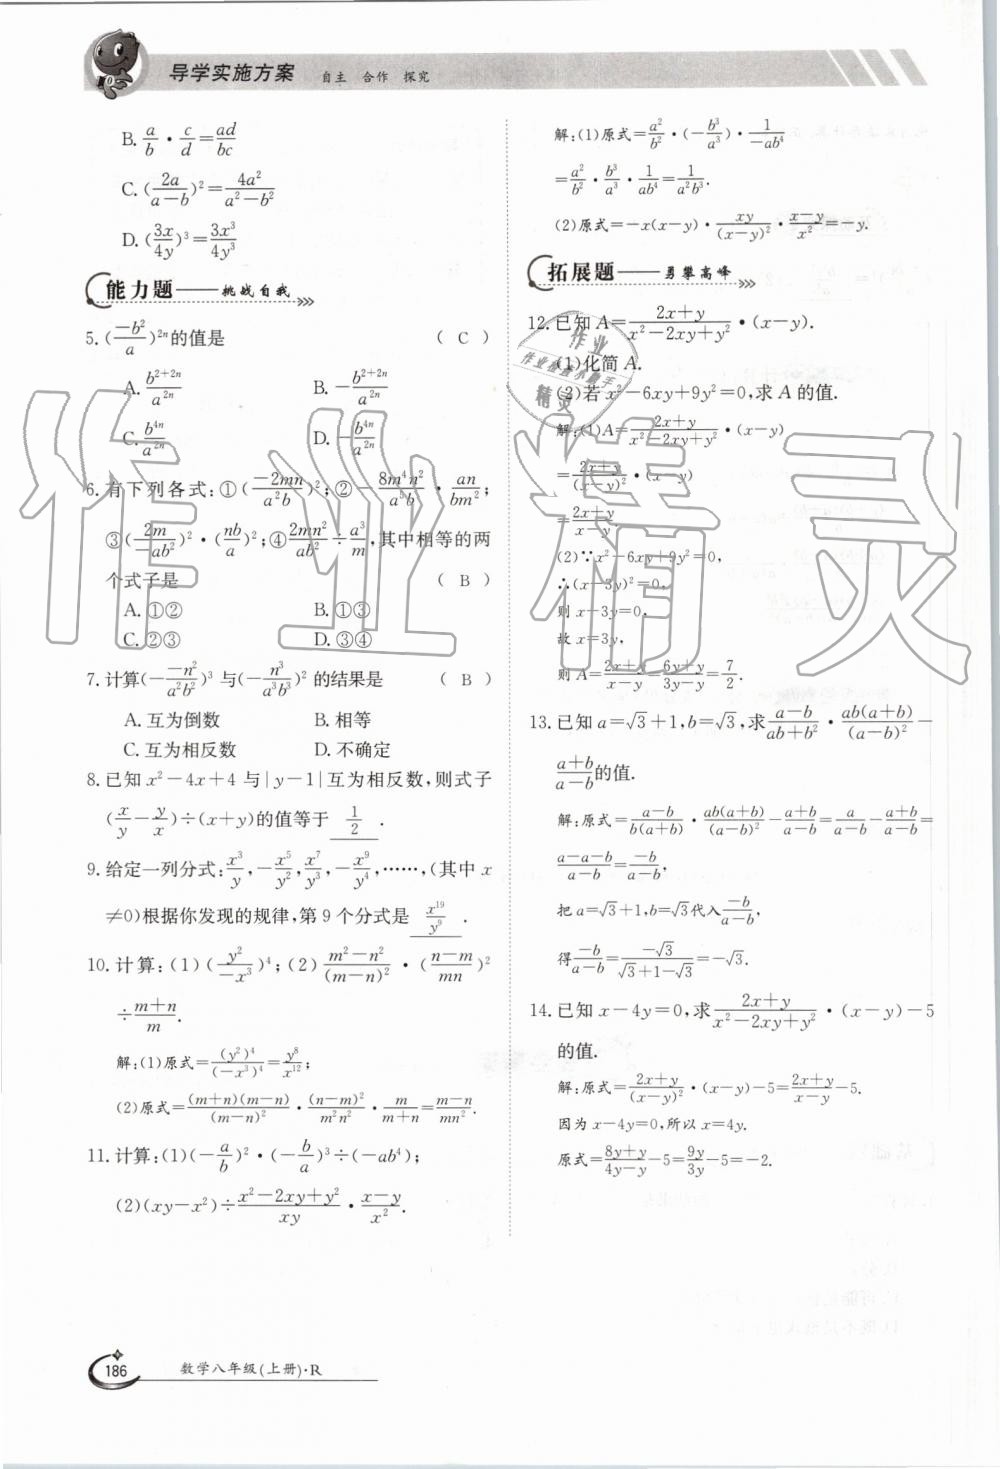 导学实施方案 自主 合作 探究
B. a/b · c/d = ad/bc
C. (2a/(a-b))² = 4a²/(a²-b²)
D. (3x/4y)³ = 3x³/4y³
能力题——挑战自我
5. (-b²/a)²ⁿ的值是 ( C )
A. b²⁺²ⁿ/a²ⁿ B. -b²⁺²ⁿ/a²ⁿ
C. b⁴ⁿ/a²ⁿ D. -b⁴ⁿ/a²ⁿ
6. 有下列各式:①(-2mn/a²b)²;②-8m⁴n²/a⁵b · an/bm²;
③(2m/-ab²)² · (nb/a)²;④2mn²/ab² ÷ a³/m,其中相等的两
个式子是 ( B )
A. ①② B. ①③
C. ②③ D. ③④
7. 计算(-n²/a²b²)³ 与(-n³/a³b³)² 的结果是 ( B )
A. 互为倒数 B. 相等
C. 互为相反数 D. 不确定
8. 已知 x²-4x+4 与|y-1|互为相反数,则式子
(x/y - y/x)÷(x+y)的值等于 1/2 .
9. 给定一列分式:x³/y,-x⁵/y²,x⁷/y³,-x⁹/y⁴,……,(其中 x
≠0)根据你发现的规律,第 9 个分式是 x¹⁹/y⁹ .
10. 计算:(1)(y²/-x³)⁴;(2)(m²-n²)/(m-n)² · ((n-m)/mn)²
÷(m+n)/m.
解:(1)原式=(y²)⁴/(-x³)⁴=y⁸/x¹²;
(2)原式=(m+n)(m-n)/(m-n)² · (n-m)²/m²n² · m/(m+n)=(m-n)/mn².
11. 计算:(1)(-a/b)² · (-b/a)³÷(-ab⁴);
(2)(xy-x²)÷(x²-2xy+y²)/xy · (x-y)/x².
解:(1)原式=a²/b² · (-b³/a³) · 1/-ab⁴
=a²/b² · b³/a³ · 1/ab⁴=1/a²b³.
(2)原式=-x(x-y) · xy/(x-y)² · (x-y)/x²=-y.
拓展题——勇攀高峰
12. 已知 A=(2x+y)/(x²-2xy+y²) · (x-y).
(1)化简 A.
(2)若 x²-6xy+9y²=0,求 A 的值.
解:(1)A=(2x+y)/(x²-2xy+y²) · (x-y)
=(2x+y)/(x-y)² · (x-y)
=(2x+y)/(x-y).
(2)∵x²-6xy+9y²=0,
∴(x-3y)²=0,
则 x-3y=0,
故 x=3y,
则 A=(2x+y)/(x-y)=(6y+y)/(3y-y)=7/2.
13. 已知 a=√3+1,b=√3,求(a-b)/(ab+b²) · ab(a+b)/(a-b)² -
(a+b)/(a-b)的值.
解:原式=(a-b)/b(a+b) · ab(a+b)/(a-b)² - (a+b)/(a-b)=a/(a-b) - (a+b)/(a-b)=
(a-a-b)/(a-b)=-b/(a-b),
把 a=√3+1,b=√3代入-b/(a-b),
得-b/(a-b)=-√3/(√3+1-√3)=-√3.
14. 已知 x-4y=0,求(2x+y)/(x²-2xy+y²) · (x-y)-5
的值.
解:原式=(2x+y)/(x-y)² · (x-y)-5=(2x+y)/(x-y)-5.
因为 x-4y=0,所以 x=4y.
原式=(8y+y)/(4y-y)-5=9y/3y-5=-2.
186 数学八年级(上册)·R
作业精灵